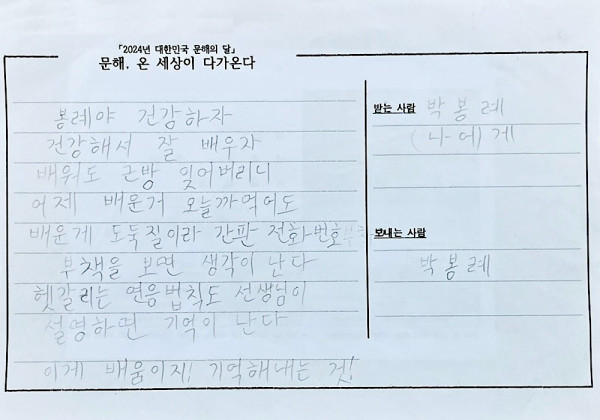 「2024년 대한민국 문해의 달」
문해, 온 세상이 다가온다
봉례야 건강하자
건강해서 잘 배우자
배워도 근방 잊어버리니
어제 배운거 오늘까먹어도
배운게 도둑질이라 간판 전화번호
부책을 보면 생각이 난다
헷갈리는 연응법칙도 선생님이
설명하면 기억이 난다
이게 배움이지! 기억해내는 것!
받는 사람 박봉례
(나에)게
보내는 사람
박봉례